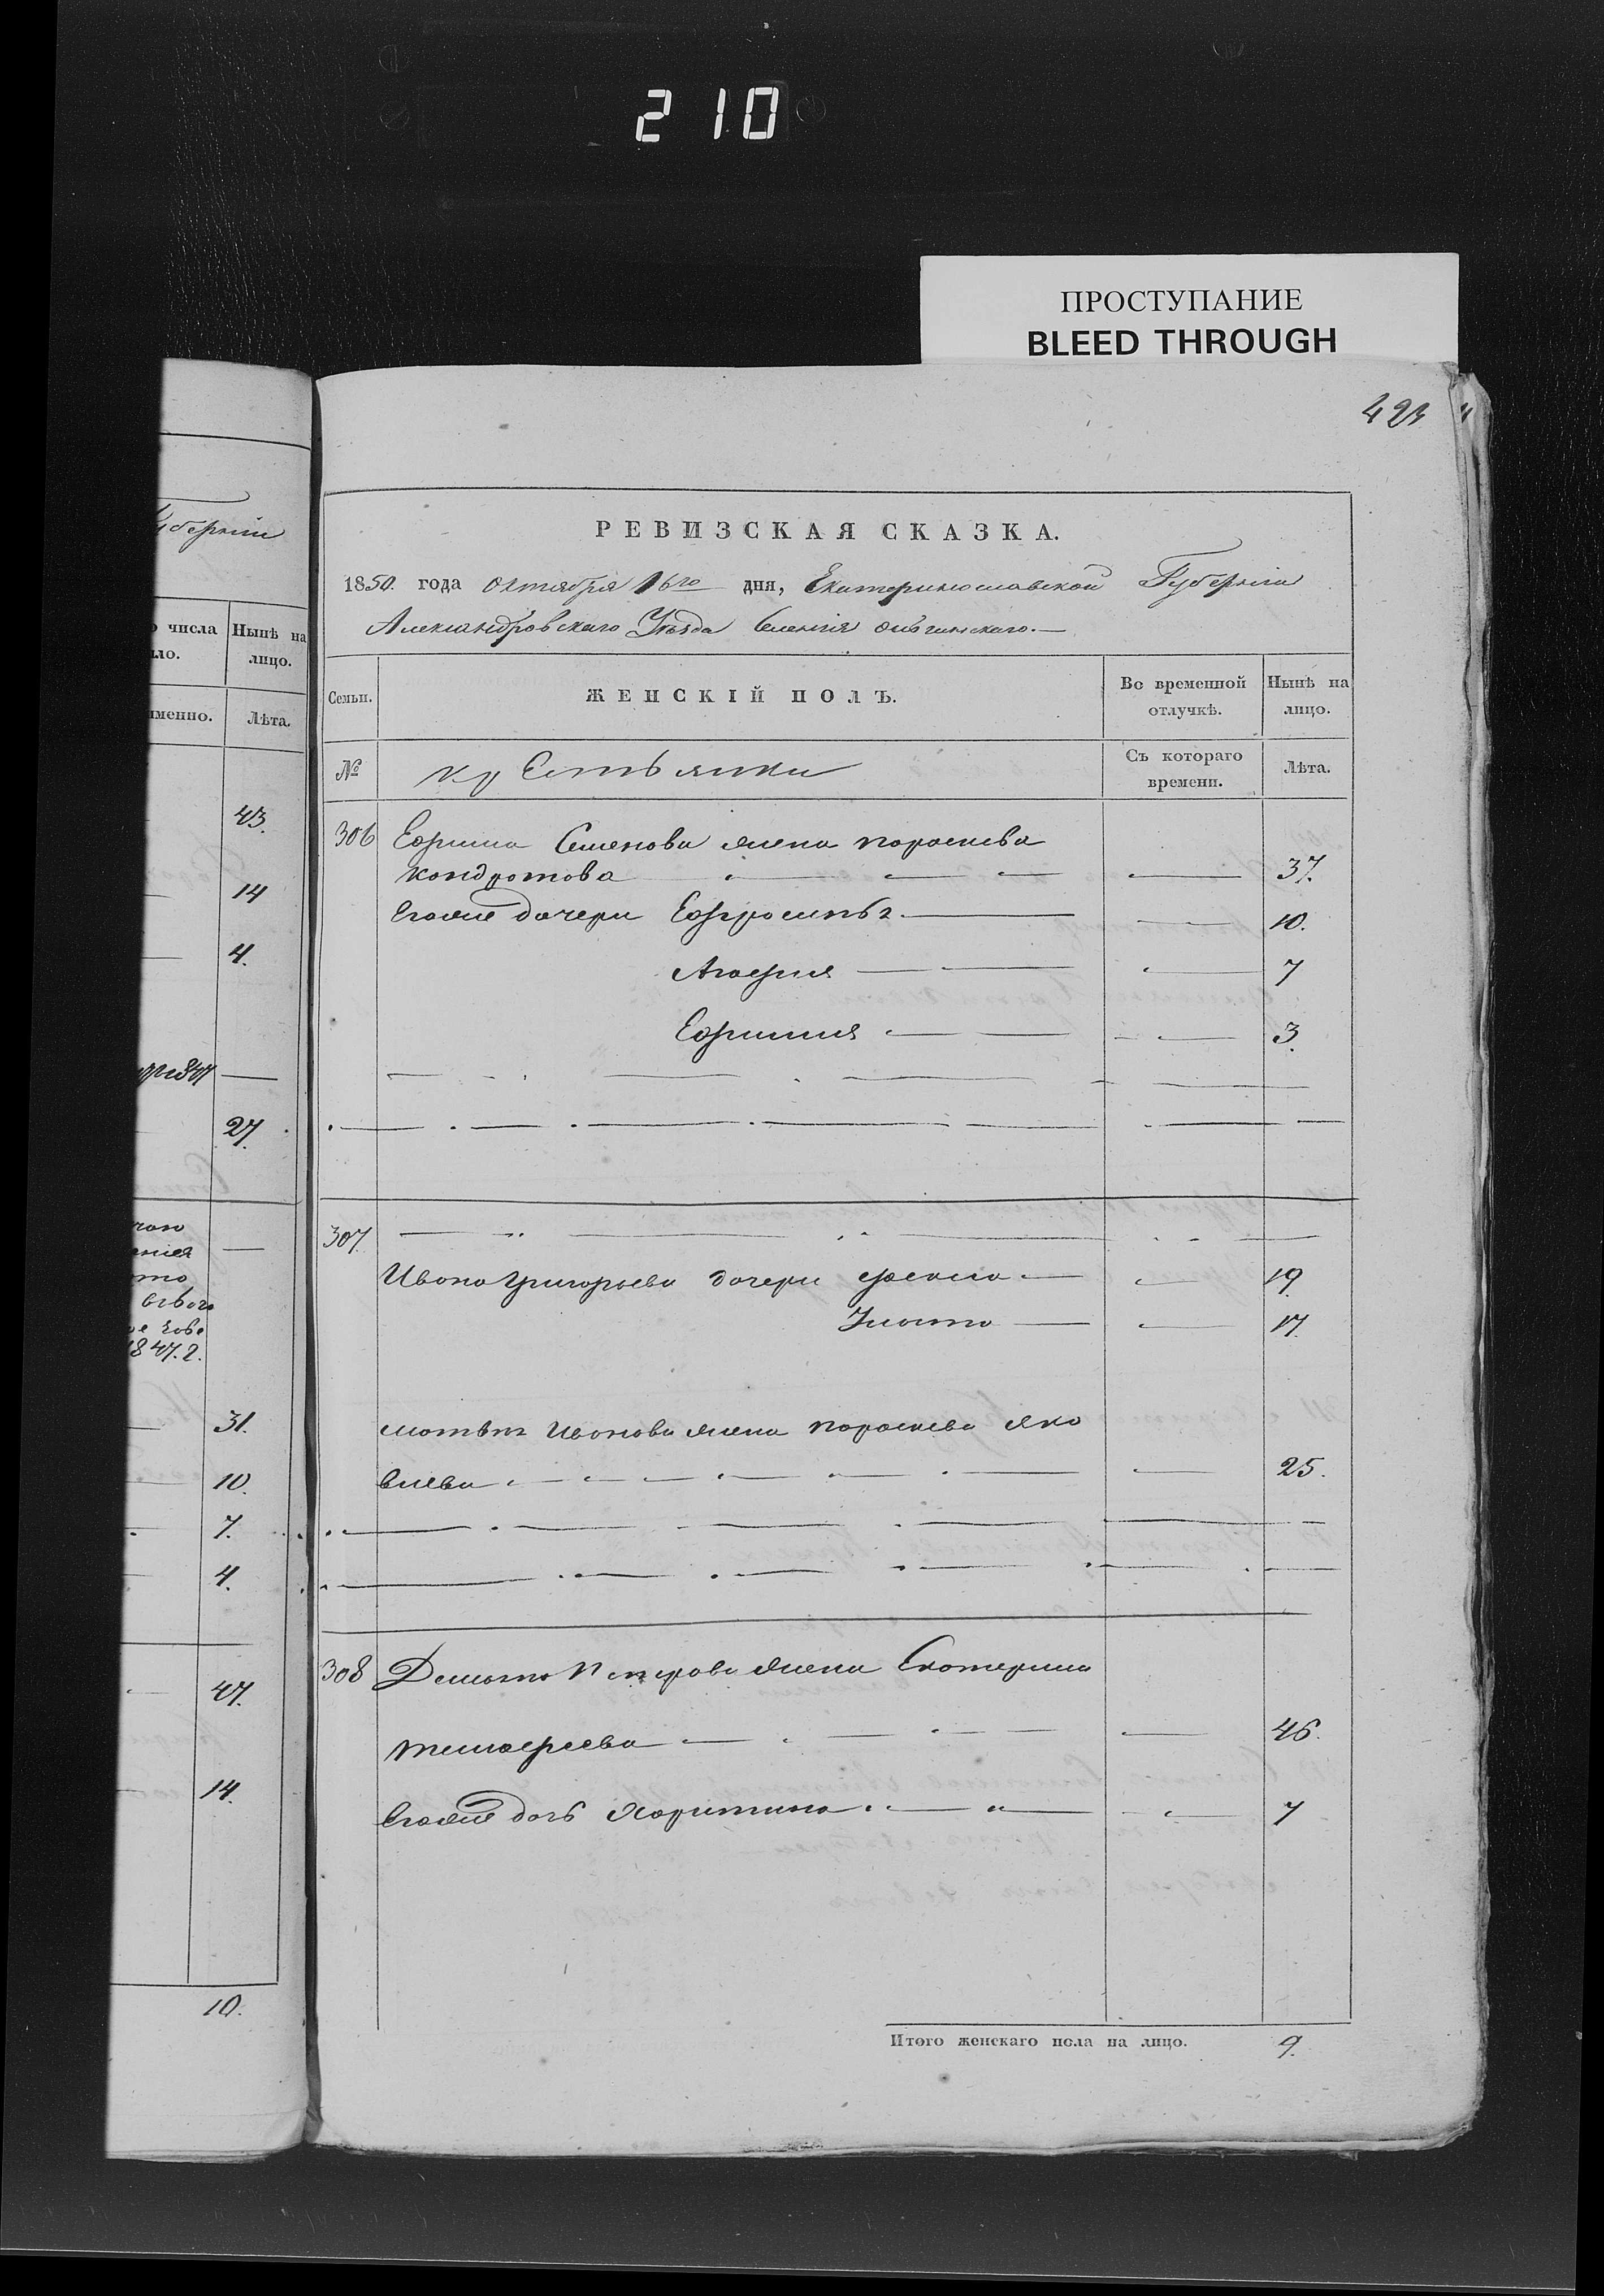 210
ПРОСТУПАНИЕ
BLEED THROUGH
423
РЕВИЗСКАЯ СКАЗКА.
1850. года Октября 16го дня, Екатеринославской Губернiи
Александровскаго Уѣзда Селенiя
Семьи. ЖЕНСКIЙ ПОЛЪ. Во временной отлучкѣ. Нынѣ на лицо.
№ крестьянки Съ котораго времени. Лѣта.
306 Ефима Семенова жена Парасκева
Кондратова 37.
Егоже дочери Ефросинья 10.
Агафия 7
Ефимия 3.
307
Ивана Григорьева дочери Фекла 19
Улита 17.
Матвѣя Иванова жена Параскева Яко
влева 25.
308 Демьяна Петрова жена Екатерина
Тимофеева 46.
Егоже дочь Харитина 7
Итого женскаго пола на лицо. 9.
губернiи
числа Нынѣ на
ло. лицо.
именно. Лѣта.
43.
14
4.
27.
1847.г.
31.
10.
7.
4.
47.
14.
10.